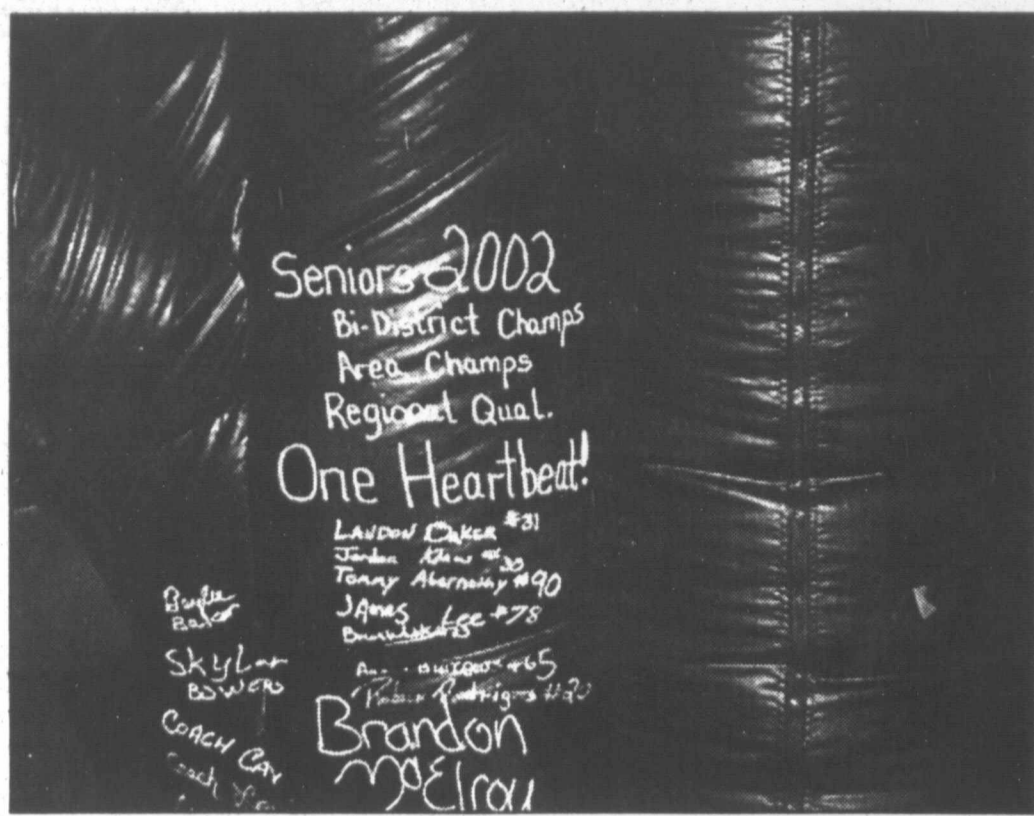 Seniors 2002
Bi-District Champs
Area Champs
Regional Qual.
One Heartbeat!
LANDON BAKER #31
Jordan #30
Tommy Abernathy #90
JAmes Lee #78
#65
Rodriguez #20
Brandon
McElroy
SkyLar
BOWERS
COACH
Coach